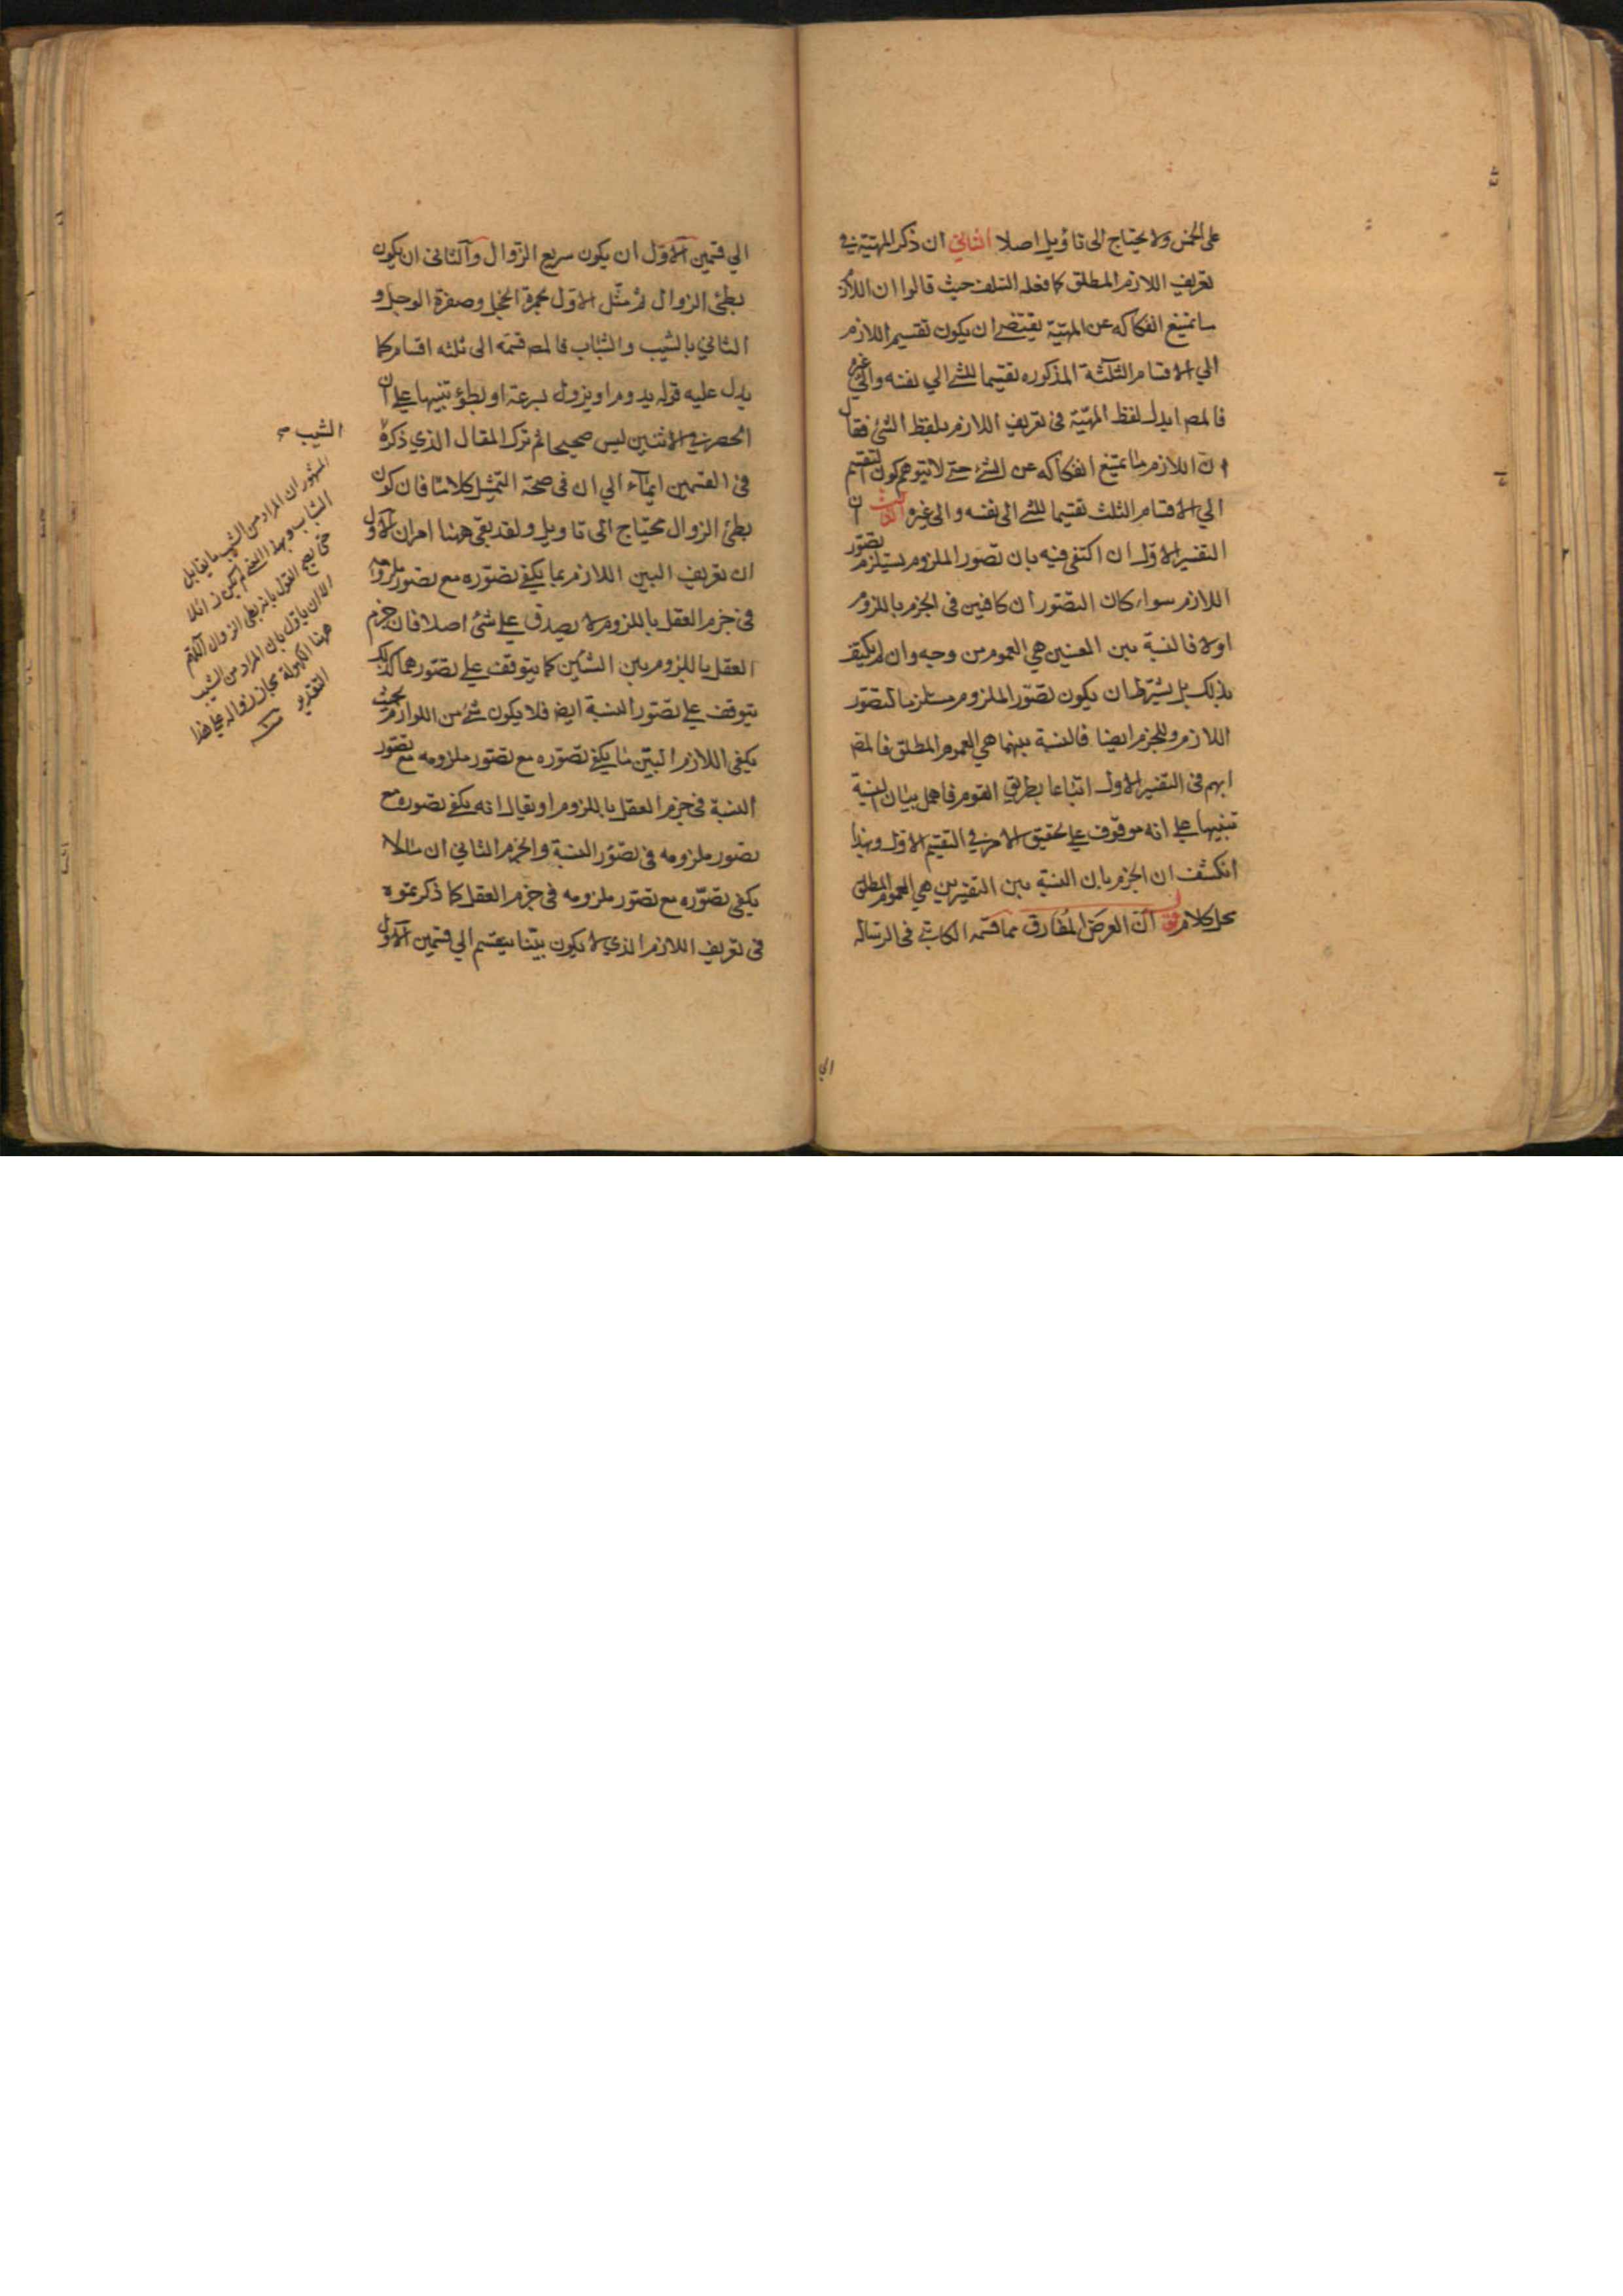 على الخمس ولا يحتاج الى تاويل اصلا الثاني ان ذكر المهيّة في
تعريف اللازم المطلق كما فعله السلف حيث قالوا ان اللازم
ما يمتنع انفكاكه عن المهيّة يقتضي ان يكون تقسيم اللازم
الى الاقسام الثلثة المذكوره تقسيما للشئ الى نفسه والى غيره
فالمصـ ابدل لفظ المهيّة فى تعريف اللازم بلفظ الشئ فقال
ان اللازم ما يمتنع انفكاكه عن الشئ حتى لا يتوهم كون التقسيم
الى الاقسام الثلث تقسيما للشئ الى نفسه والى غيره الثالث ان
التفسير الاول ان اكتفى فيه بان تصور الملزوم يستلزم تصور
اللازم سواء كان التصوران كافيين فى الجزم باللزوم
اولا فالنسبة بين المعنيين هي العموم من وجه وان لم يكتف
بذلك بل يشترط ان يكون تصور الملزوم مستلزما لتصور
اللازم وللجزم ايضا فالنسبة بينهما هي العموم المطلق فالمصـ
ابهم فى التفسير الاول اتباعا بطريق القوم فاهمل بيان النسبة
تنبيها على انه موقوف على تحقيق الامر في التقسيم الاول وبهذا
انكشف ان الجزم بان النسبة بين التفسيرين هي العموم المطلق
محل كلام ان العرض المفارق مما قسمه الكاتبي فى الرساله
الى
الي قسمين الاول ان يكون سريع الزوال والثانى ان يكون
بطئ الزوال ثم مثّل الاول بحمرة الخجل وصفرة الوجل و
الثاني بالشيب والشباب فالمصـ قسمه الى ثلثه اقسام كما
يدل عليه قوله يدوم او يزول بسرعة او بطؤ تنبيها على ان
الحصر في الاثنين ليس صحيحا ثم ترك المقال الذي ذكره
فى القسمين ايمآء الي ان فى صحة التمثيل كلاما فان كون
الشيب
بطئ الزوال محتاج الى تاويل ولقد بقى ههنا امران الاول
ان تعريف البين اللازم بما يكفى تصوره مع تصور ملزومه
فى جزم العقل باللزوم لا يصدق على شئ اصلا فان جزم
العقل باللزوم بين الشئين كما يتوقف على تصورهما كذلك
يتوقف على تصور النسبة ايضا فلا يكون شئ من اللوازم بحيث
يكفى اللازم البيّن ما يكفى تصوره مع تصور ملزومه مع تصور
النسبة فى جزم العقل باللزوم او يقال انه يكفى تصوره مع
تصور ملزومه فى تصور النسبة والجزم الثاني ان ما لا
يكفى تصوّره مع تصور ملزومه فى جزم العقل كما ذكرتموه
فى تعريف اللازم الذي لا يكون بيّنا ينقسم الي قسمين الاول
المشهور ان المراد من الشيب ما يقابل
الشباب وبهذا المعنى لم يكن زائلا
حتى يصح القول بانه بطئ الزوال اللهم
الا ان ياول بان المراد من الشيب
ههنا الكهولة مجاز زواله على هذا
التقدير